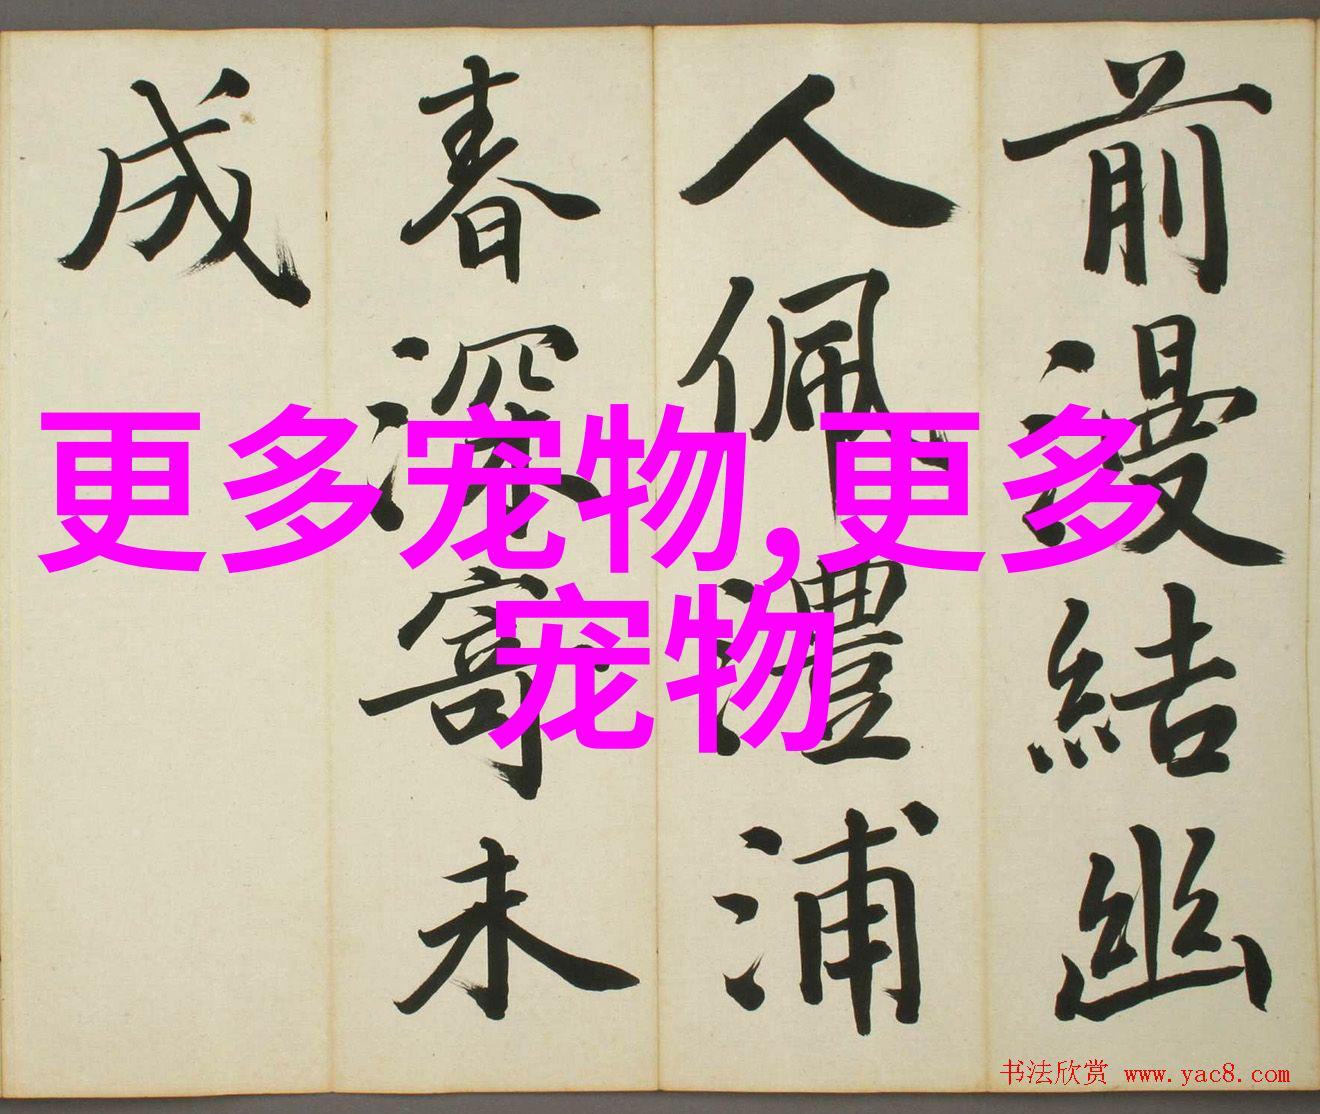 前漫結幽
人佩澧浦
春深寄未
成
更多宠物,更多
宠物
书法欣赏 www.yac8.com